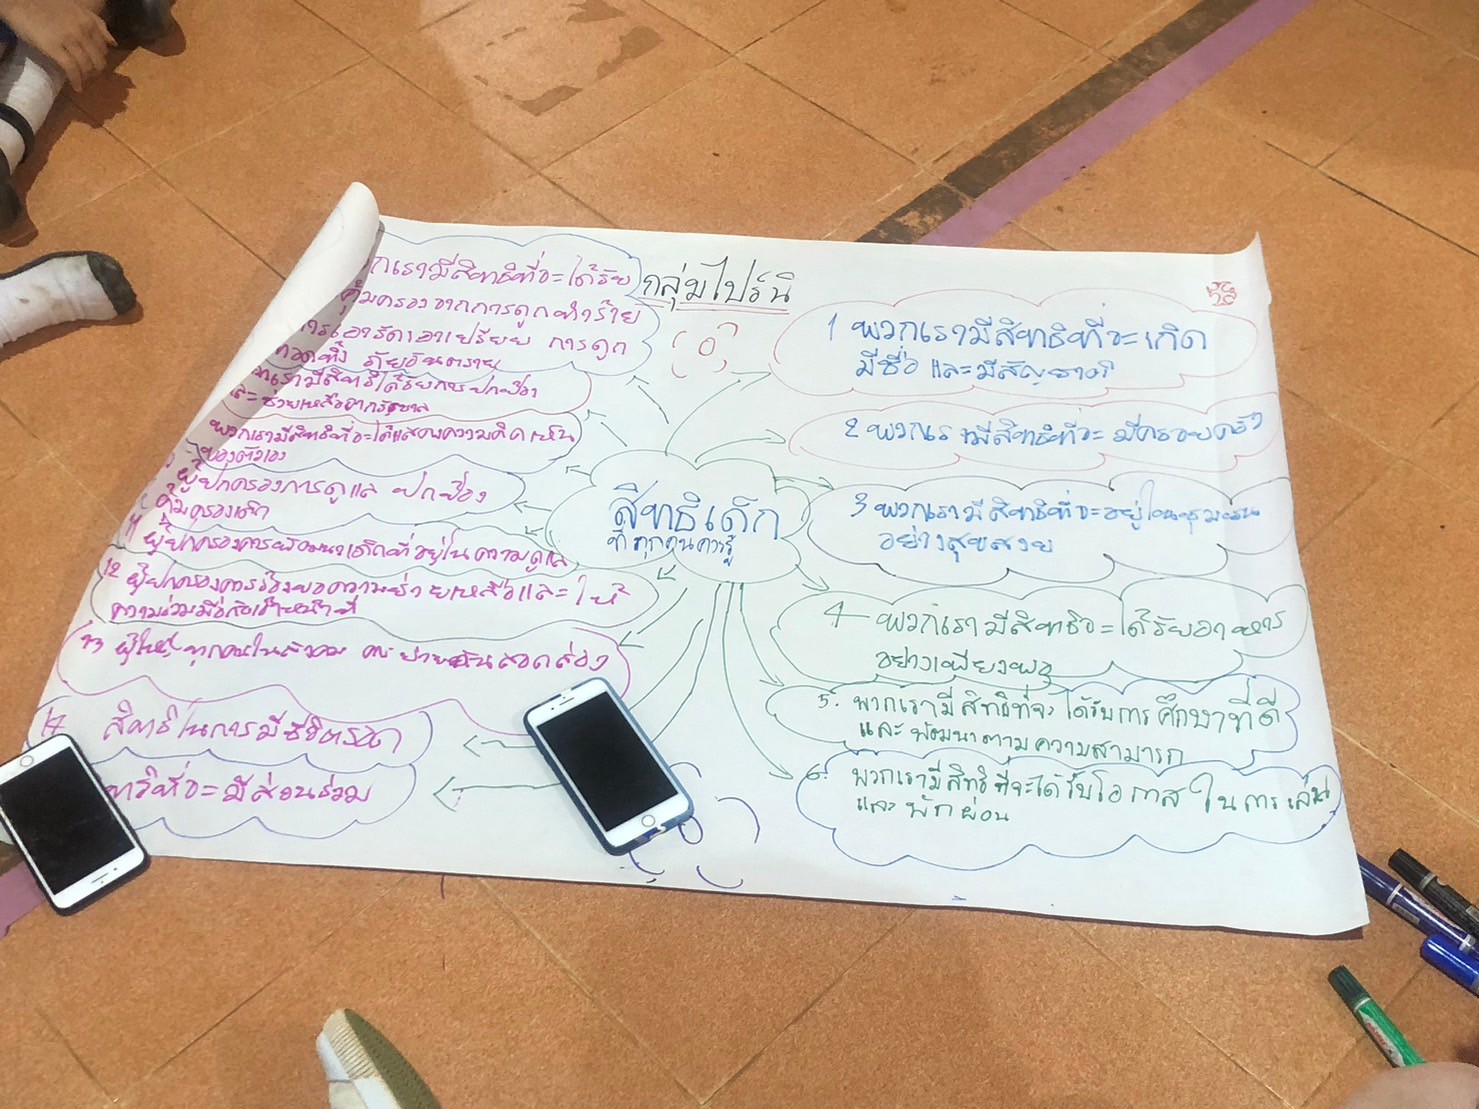 กลุ่มไปร์นิ
สิทธิเด็ก
ที่ทุกคนควรรู้
1 พวกเรามีสิทธิที่จะเกิด
มีชื่อ และมีสัญชาติ
2 พวกเรามีสิทธิที่จะ มีครอบครัว
3 พวกเรามีสิทธิที่จะอยู่ในชุมชน
อย่างสุขสงบ
4 พวกเรามีสิทธิจะได้รับอาหาร
อย่างเพียงพอ
5. พวกเรามีสิทธิที่จะได้รับการศึกษาที่ดี
และ พัฒนาตามความสามารถ
6. พวกเรามีสิทธิที่จะได้รับโอกาสในการเล่น
และ พักผ่อน
กเรามีสิทธิที่จะได้รับ
คุ้มครองจากการถูกทำร้าย
การเอารัดเอาเปรียบ การถูก
ทอดทิ้ง ภัยอันตราย
เรามีสิทธิได้รับการปกป้อง
และช่วยเหลือจากรัฐบาล
พวกเรามีสิทธิที่จะได้แสดงความคิดเห็น
ของตัวเอง
ผู้ปกครองการดูแล ปกป้อง
คุ้มครองเด็ก
11 ผู้ปกครองควรพัฒนาเด็กที่อยู่ในความดูแล
12 ผู้ปกครองควรร้องขอความช่วยเหลือและให้
ความร่วมมือกับเจ้าหน้าที่
13 ผู้ใหญ่ ทุกคนในสังคม ควรช่วยกันสอดส่อง
สิทธิในการมีชีวิตรอด
ที่จะมีส่วนร่วม